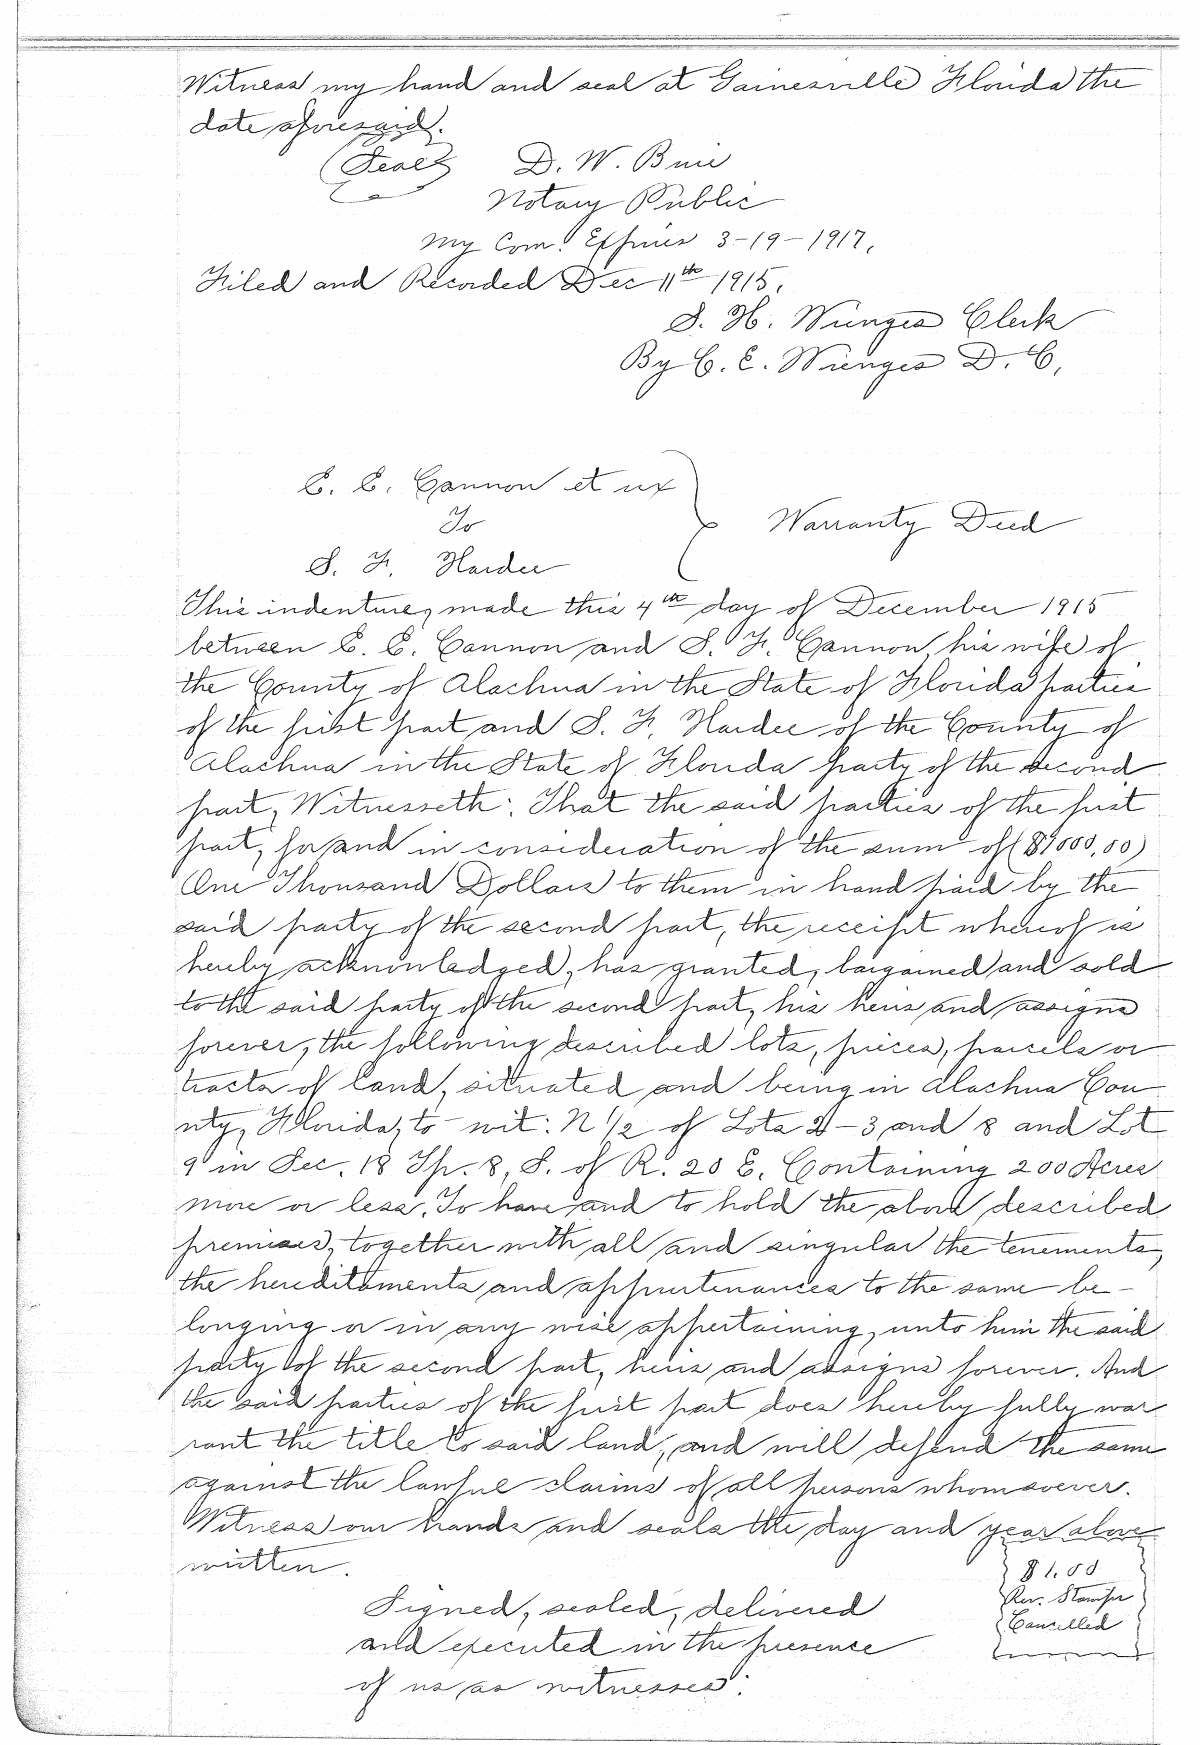 Witness my hand and seal at Gainesville Florida the
date aforesaid.
(Seal) D. W. Buie
Notary Public
My Com. Expires 3-19-1917.
Filed and Recorded Dec 11th 1915.
S. H. Wienges Clerk
By C. E. Wienges D. C.
E. E. Cannon et ux
To
Warranty Deed
S. F. Hardee
This indenture, made this 4th day of December 1915
between E. E. Cannon and S. F. Cannon his wife of
the County of Alachua in the State of Florida parties
of the first part and S. F. Hardee of the County of
Alachua in the State of Florida party of the second
part, Witnesseth: That the said parties of the first
part, for and in consideration of the sum of ($1000.00)
One Thousand Dollars to them in hand paid by the
said party of the second part, the receipt whereof is
hereby acknowledged, has granted, bargained and sold
to the said party of the second part, his heirs and assigns
forever, the following described lots, pieces, parcels or
tracts of land, situated and being in Alachua Cou
nty, Florida, to wit: N 1/2 of Lots 2-3 and 8 and Lot
9 in Sec. 18 Tp. 8, S. of R. 20 E. Containing 200 Acres
more or less. To have and to hold the above described
premises, together with all and singular the tenements,
the hereditaments and appurtenances to the same be-
longing or in any wise appertaining, unto him the said
party of the second part, heirs and assigns forever. And
the said parties of the first part does hereby fully war
rant the title to said land, and will defend the same
against the lawful claims of all persons whomsoever.
Witness our hands and seals the day and year above
written.
$1.00
Rev. Stamps
Cancelled
Signed, sealed, delivered
and executed in the presence
of us as witnesses: